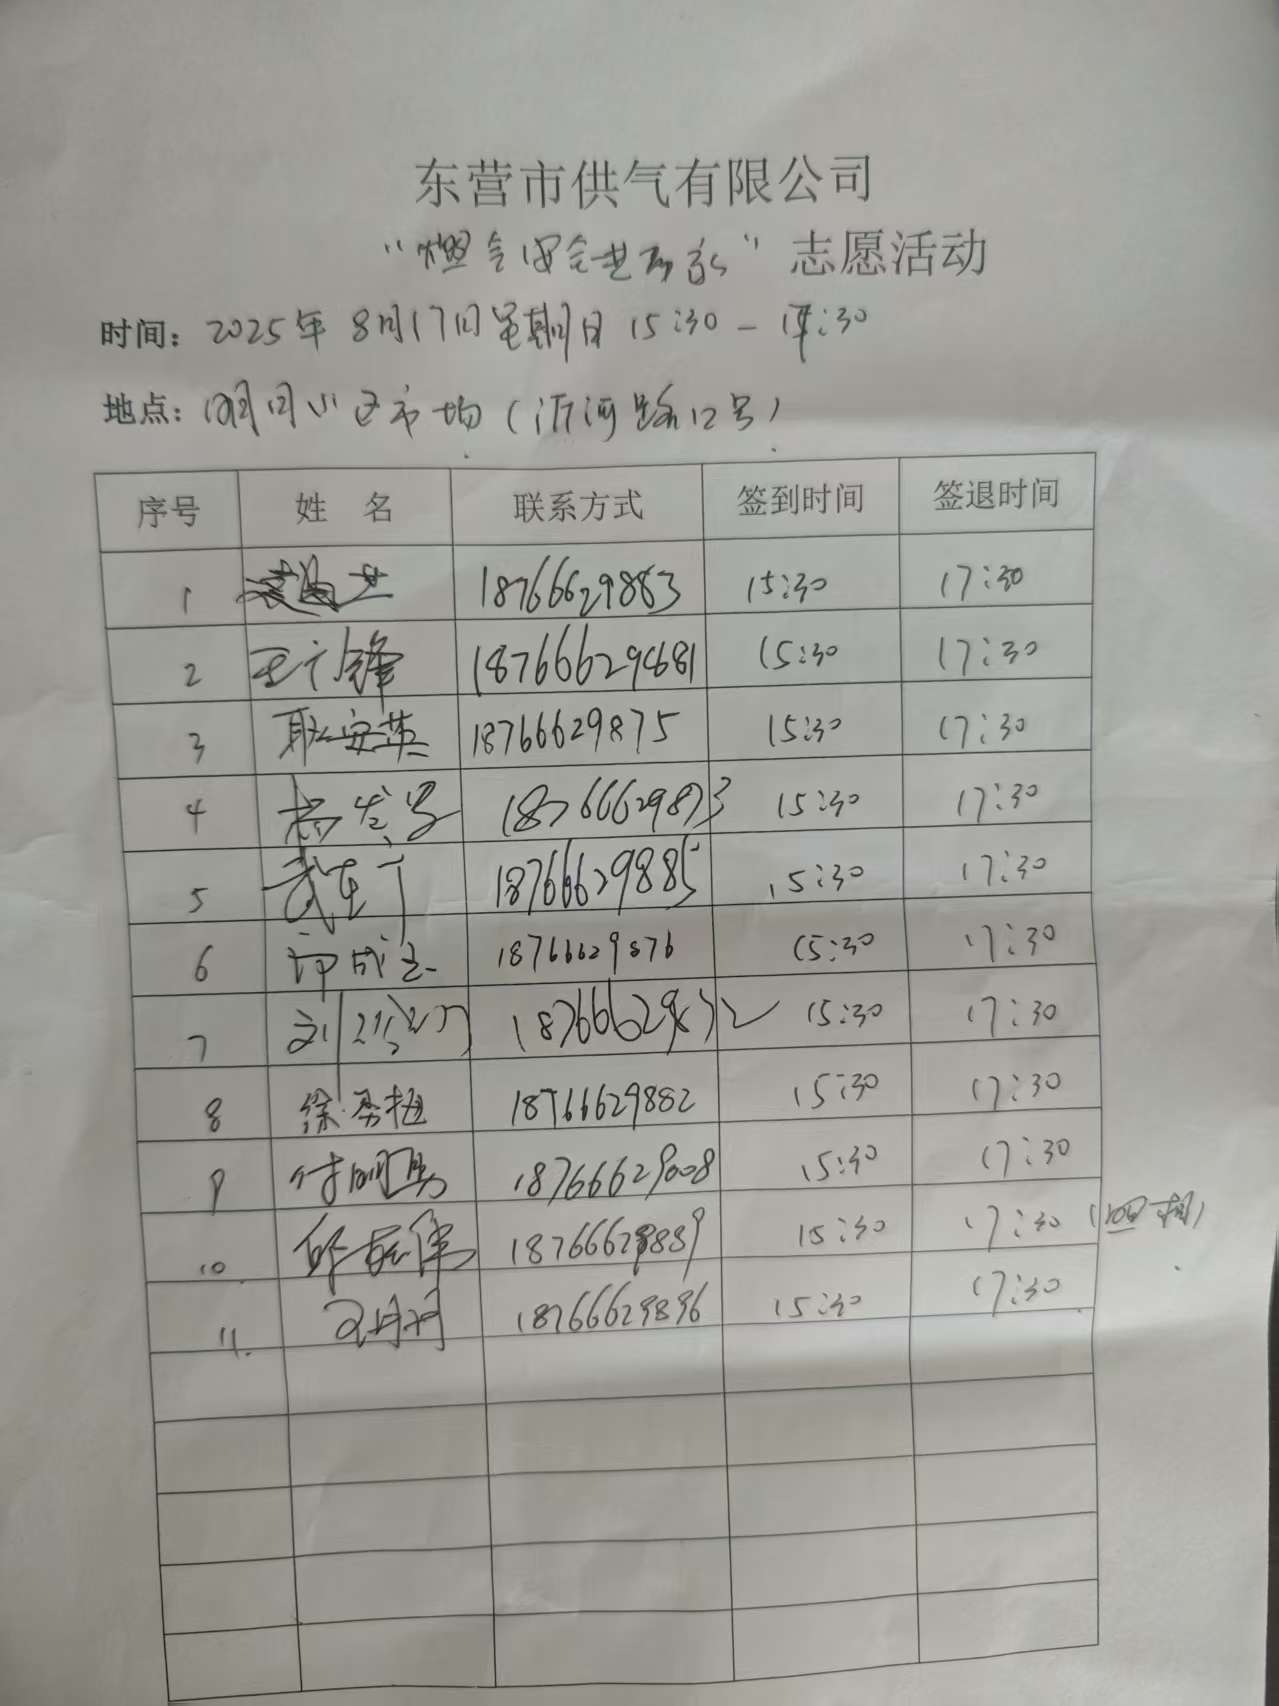 东营市供气有限公司
“燃气安全进万家”志愿活动
时间：2025年8月17日星期日 15:30-17:30
地点：明月小区市场（沂河路12号）
序号 姓 名 联系方式 签到时间 签退时间
1 18766629883 15:30 17:30
2 王广锋 15:30 17:30
3 耿安英 18766629875 15:30 17:30
4 18766629873 15:30 17:30
5 武 18766629885 15:30 17:30
6 18766629876 15:30 17:30
7 刘 15:30 17:30
8 徐秀梅 18766629882 15:30 17:30
9 付明勇 18766629008 15:30 17:30
10 18766629889 15:30 17:30
11 18766629896 15:30 17:30